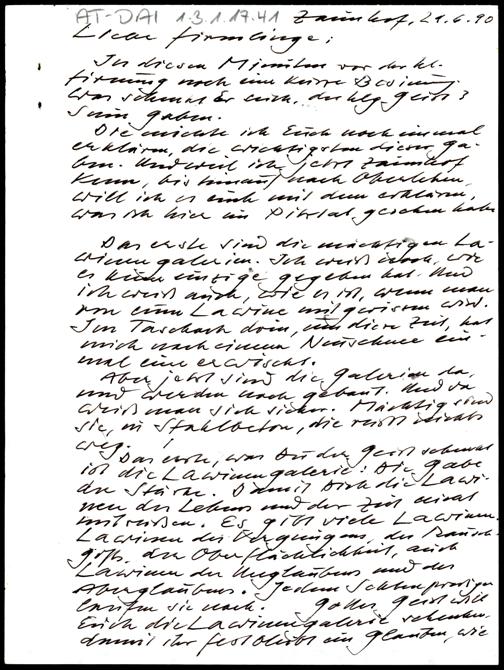 AT-DAI 1.3.1.17.41 Zaunhof, 21.6.90
Liebe Firmlinge!
In diesen Minuten vor der hl.
Firmung noch eine kurze Besinnung.
Was schenkt Er euch, der hlg. Geist?
Seine Gaben.
Die möchte ich Euch noch einmal
erklären, die wichtigsten dieser Ga-
ben. Und weil ich jetzt Zaunhof
kenn, bis hinauf nach Oberlehen,
will ich es euch mit dem erklären,
was ich hier im Pitztal gesehen habe
Das erste sind die mächtigen La-
winengalerien. Ich weiß noch, wie
es keine einzige gegeben hat. Und
ich weiß auch, wie es ist, wenn man
von einer Lawine mitgerissen wird.
Im Taschach drin, um diese Zeit, hat
mich nach einem Neuschnee ein-
mal eine erwischt.
Aber jetzt sind die Galerien da,
und werden noch gebaut. Und da
weiß man sich sicher. Mächtig sind
sie, in Stahlbeton, die reißt nichts
weg.
Das erste, was Euch der Geist schenkt
ist die Lawinengalerie: Die Gabe
der Stärke. Damit Dich die Lawi-
nen des Lebens und der Zeit nicht
mitreißen. Es gibt viele Lawinen.
Lawinen des Vergnügens, des Rausch-
gifts, der Oberflächlichkeit, auch
Lawinen des Unglaubens und des
Aberglaubens. Jedem Sektenprediger
laufen sie nach. Gottes Geist will
Euch die Lawinengalerie schenken,
damit ihr fest bleibt im Glauben, wie